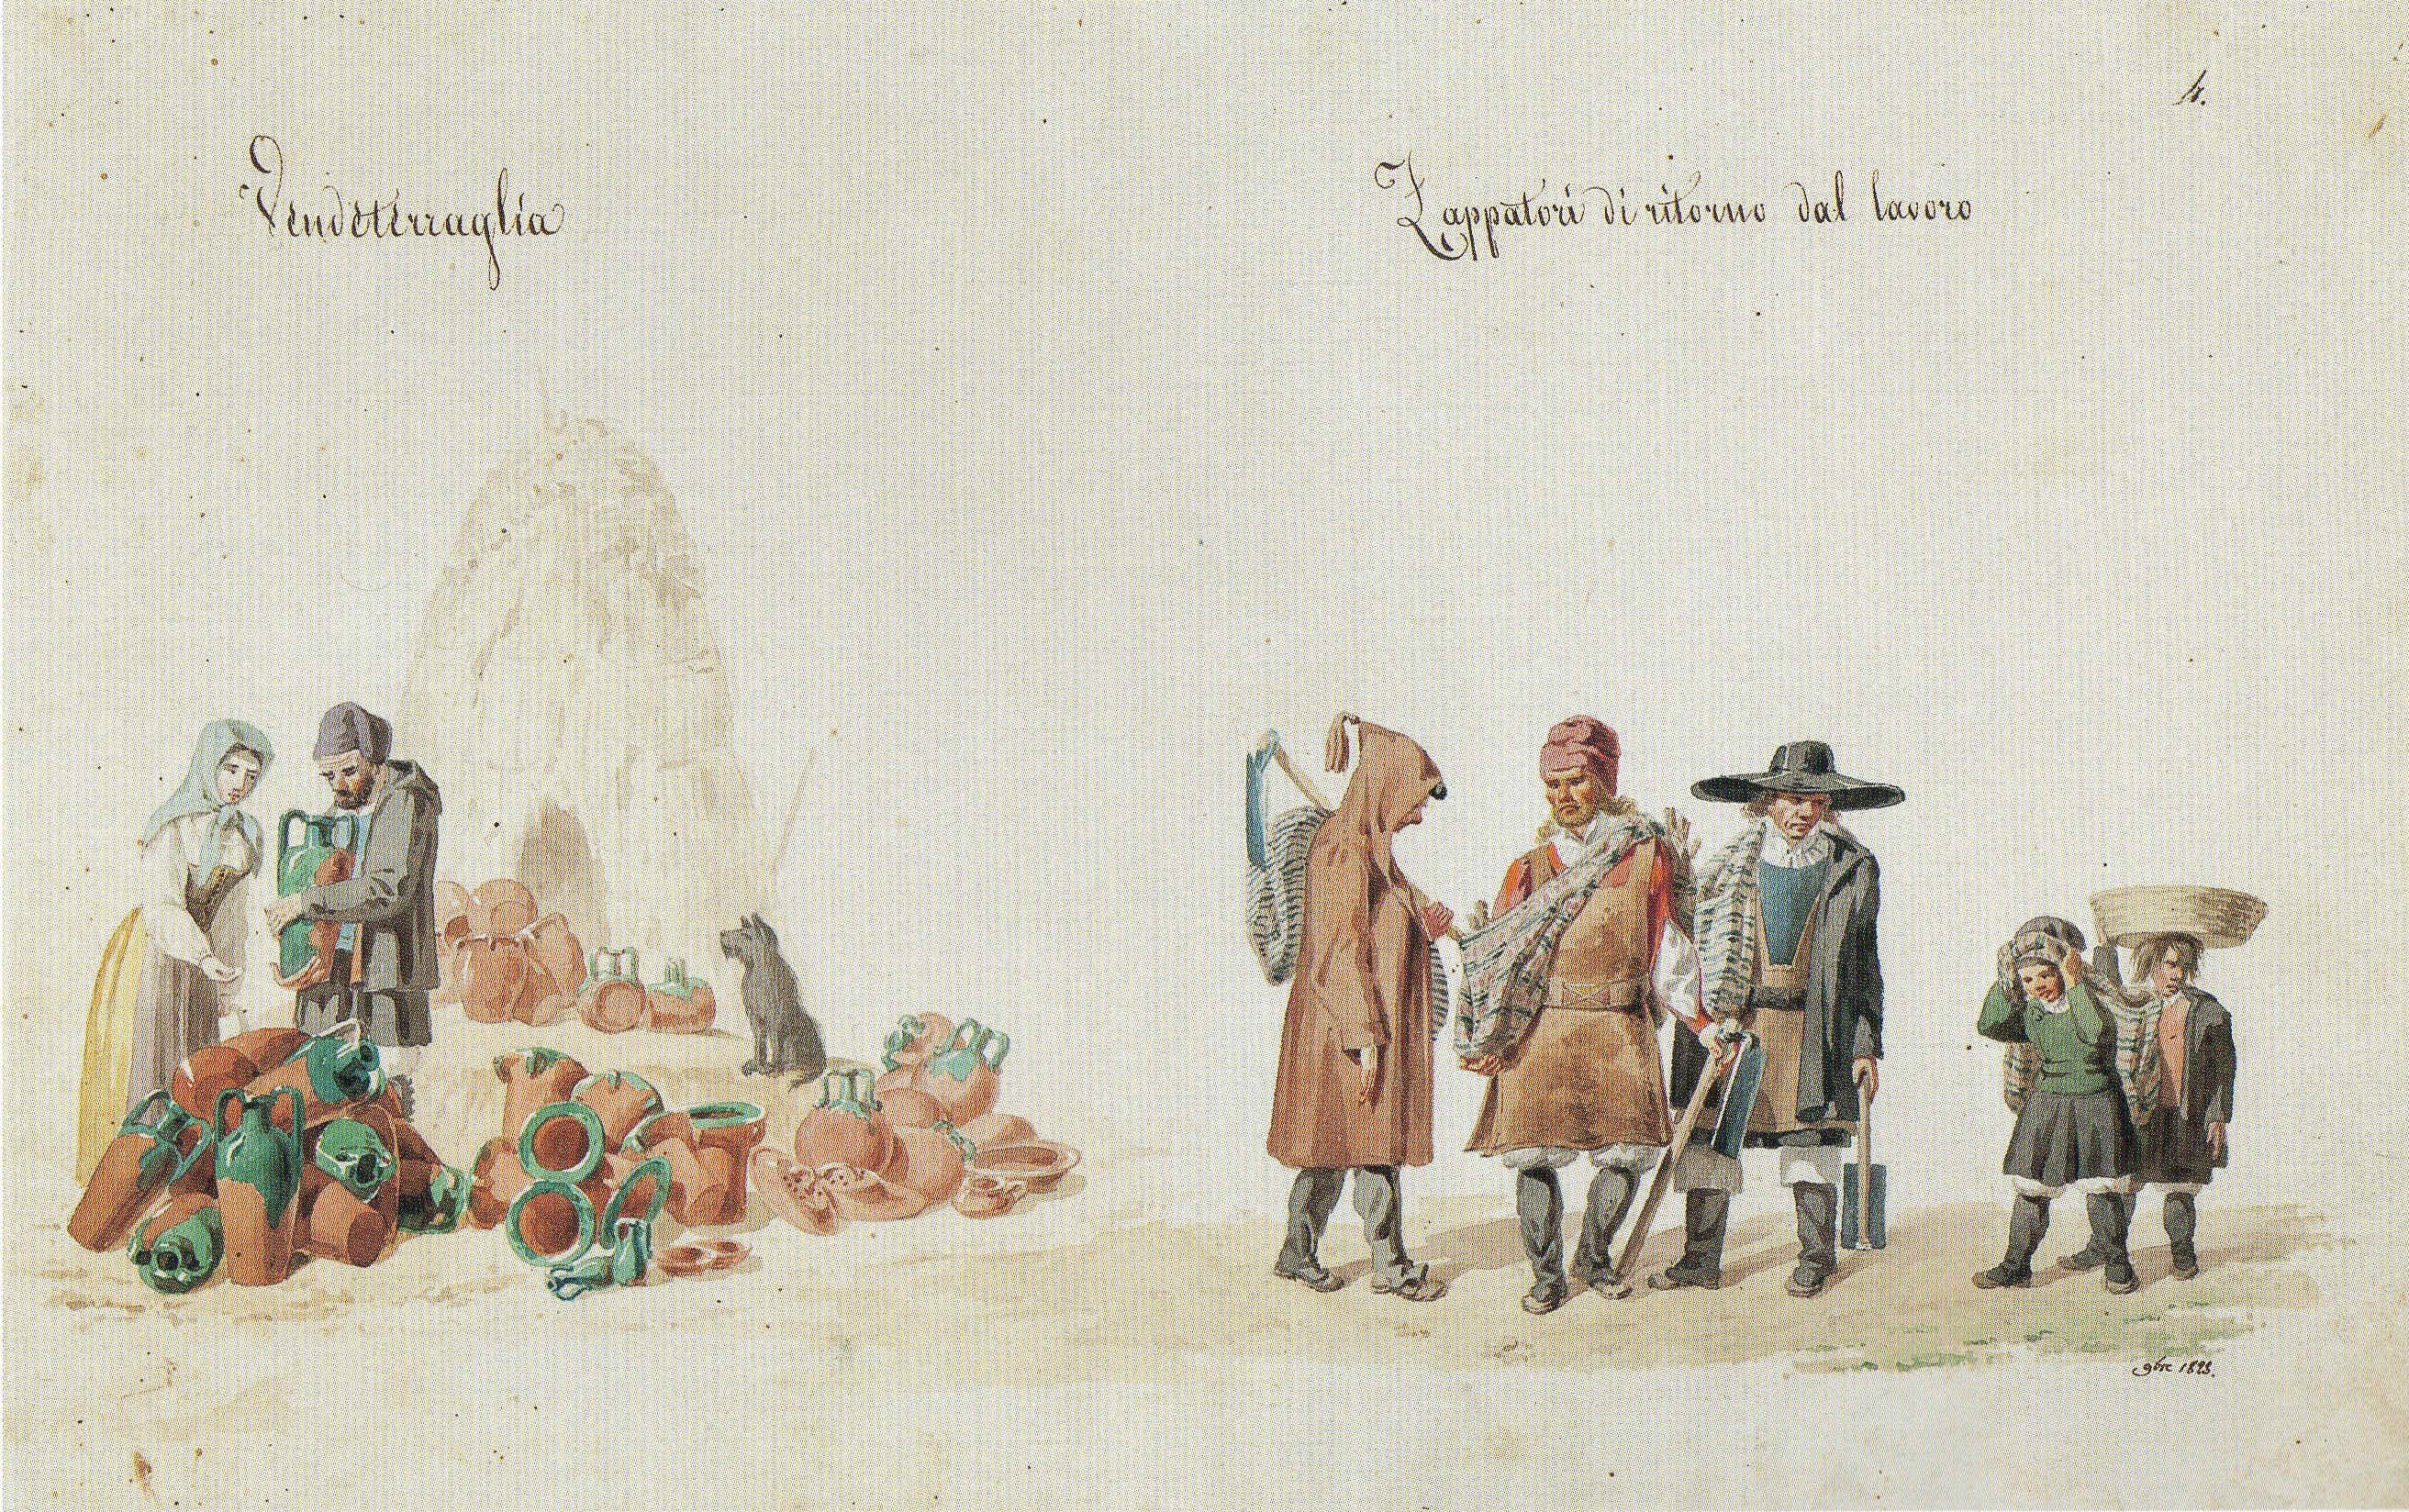 4.
Vendeterraglia
Zappatori di ritorno dal lavoro
9bre 1828.